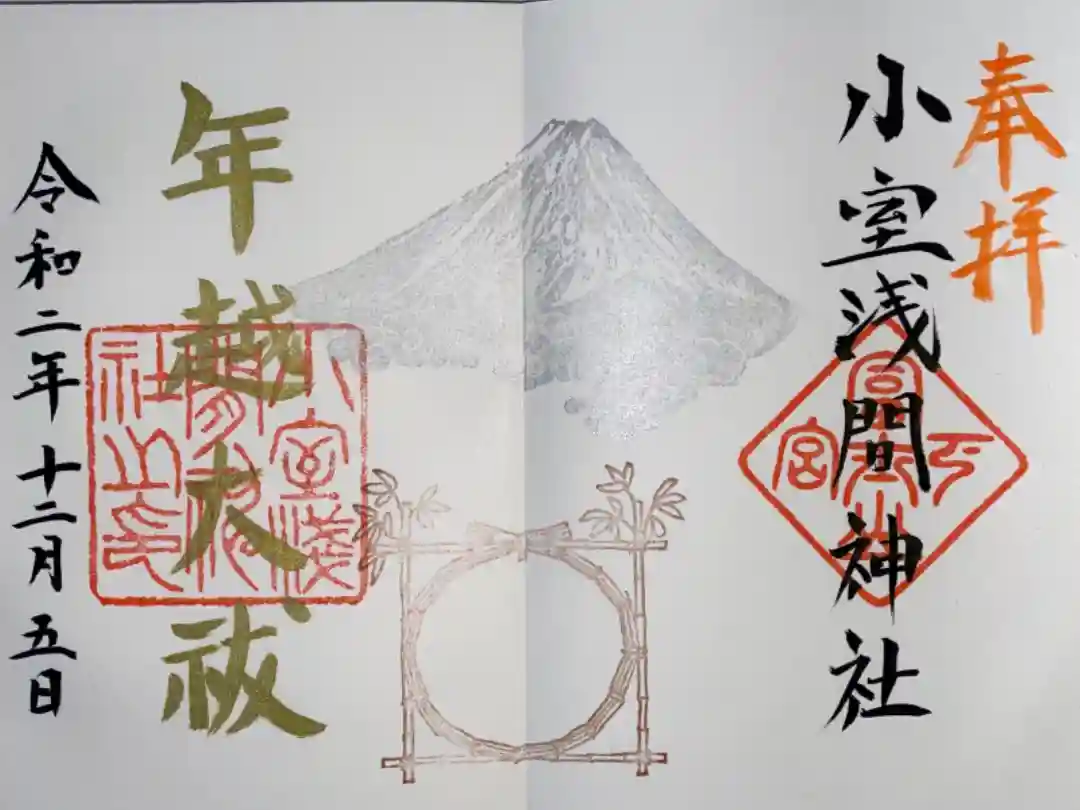 奉拝
小室浅間神社
年越大祓
令和二年十二月五日